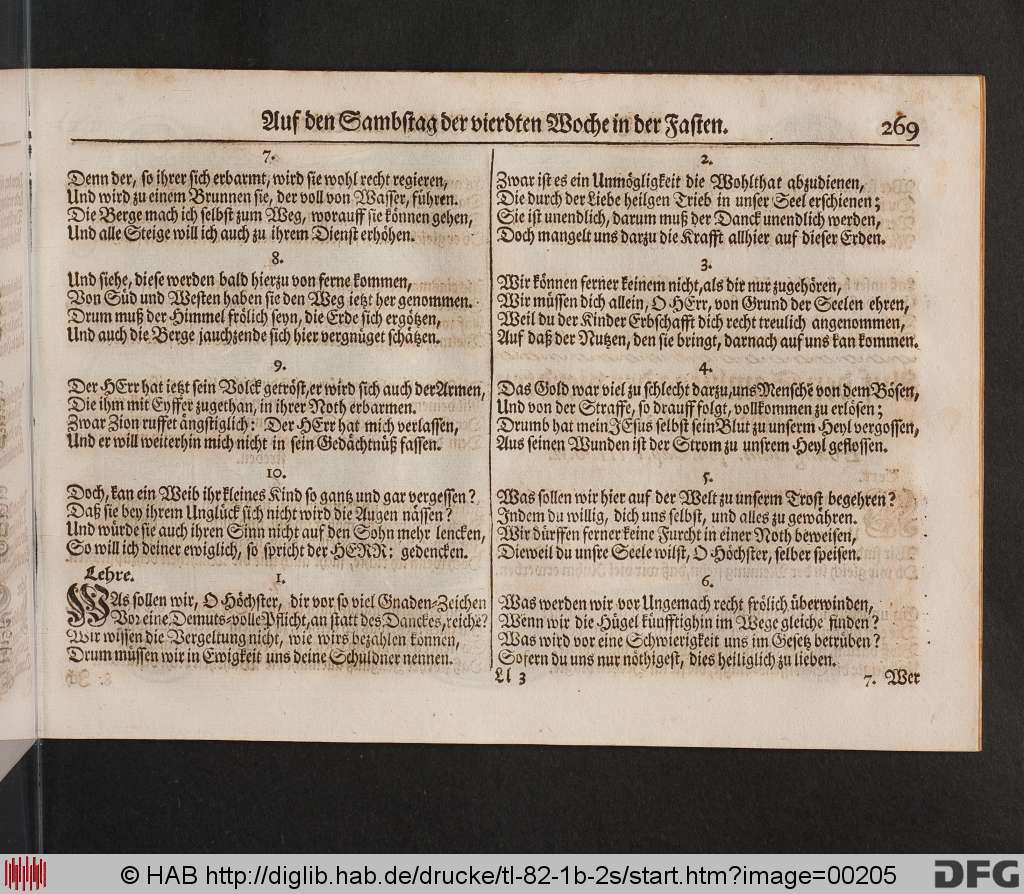 Auf den Sambstag der vierdten Woche in der Fasten. 269
7.
Denn der, so ihrer sich erbarmt, wird sie wohl recht regieren,
Und wird zu einem Brunnen sie, der voll von Wasser, führen.
Die Berge mach ich selbst zum Weg, worauff sie können gehen,
Und alle Steige will ich auch zu ihrem Dienst erhöhen.
8.
Und siehe, diese werden bald hierzu von ferne kommen,
Von Süd und Westen haben sie den Weg ietzt her genommen.
Drum muß der Himmel frölich seyn, die Erde sich ergötzen,
Und auch die Berge jauchzende sich hier vergnüget schätzen.
9.
Der HErr hat ietzt sein Volck getröst, er wird sich auch der Armen,
Die ihm mit Eyffer zugethan, in ihrer Noth erbarmen.
Zwar Zion ruffet ängstiglich: Der HErr hat mich verlassen,
Und er will weiterhin mich nicht in sein Gedächtnüß fassen.
10.
Doch, kan ein Weib ihr kleines Kind so gantz und gar vergessen?
Daß sie bey ihrem Unglück sich nicht wird die Augen nässen?
Und würde sie auch ihren Sinn nicht auf den Sohn mehr lencken,
So will ich deiner ewiglich, so spricht der HERR: gedencken.
Lehre. 1.
WAs sollen wir, O Höchster, dir vor so viel Gnaden-Zeichen
Vor eine Demuts-volle Pflicht, an statt des Danckes, reiche?
Wir wissen die Vergeltung nicht, wie wirs bezahlen können,
Drum müssen wir in Ewigkeit uns deine Schuldner nennen.
2.
Zwar ist es ein Unmögligkeit die Wohlthat abzudienen,
Die durch der Liebe heilgen Trieb in unser Seel erschienen;
Sie ist unendlich, darum muß der Danck unendlich werden,
Doch mangelt uns darzu die Krafft allhier auf dieser Erden.
3.
Wir können ferner keinem nicht, als dir nur zugehören,
Wir müssen dich allein, O HErr, von Grund der Seelen ehren,
Weil du der Kinder Erbschafft dich recht treulich angenommen,
Auf daß der Nutzen, den sie bringt, darnach auf uns kan kommen.
4.
Das Gold war viel zu schlecht darzu, uns Mensche͂ von dem Bösen,
Und von der Straffe, so drauff folgt, vollkommen zu erlösen;
Drumb hat mein JEsus selbst sein Blut zu unserm Heyl vergossen,
Aus seinen Wunden ist der Strom zu unsrem Heyl geflossen.
5.
Was sollen wir hier auf der Welt zu unserm Trost begehren?
Indem du willig, dich uns selbst, und alles zu gewähren.
Wir dürffen ferner keine Furcht in einer Noth beweisen,
Dieweil du unsre Seele wilst, O Höchster, selber speisen.
6.
Was werden wir vor Ungemach recht frölich überwinden,
Wenn wir die Hügel künfftighin im Wege gleiche finden?
Was wird vor eine Schwierigkeit uns im Gesetz betrüben?
Sofern du uns nur nöthigest, dies heiliglich zu lieben.
Ll 3 7. Wer
© HAB http://diglib.hab.de/drucke/tl-82-1b-2s/start.htm?image=00205
DFG